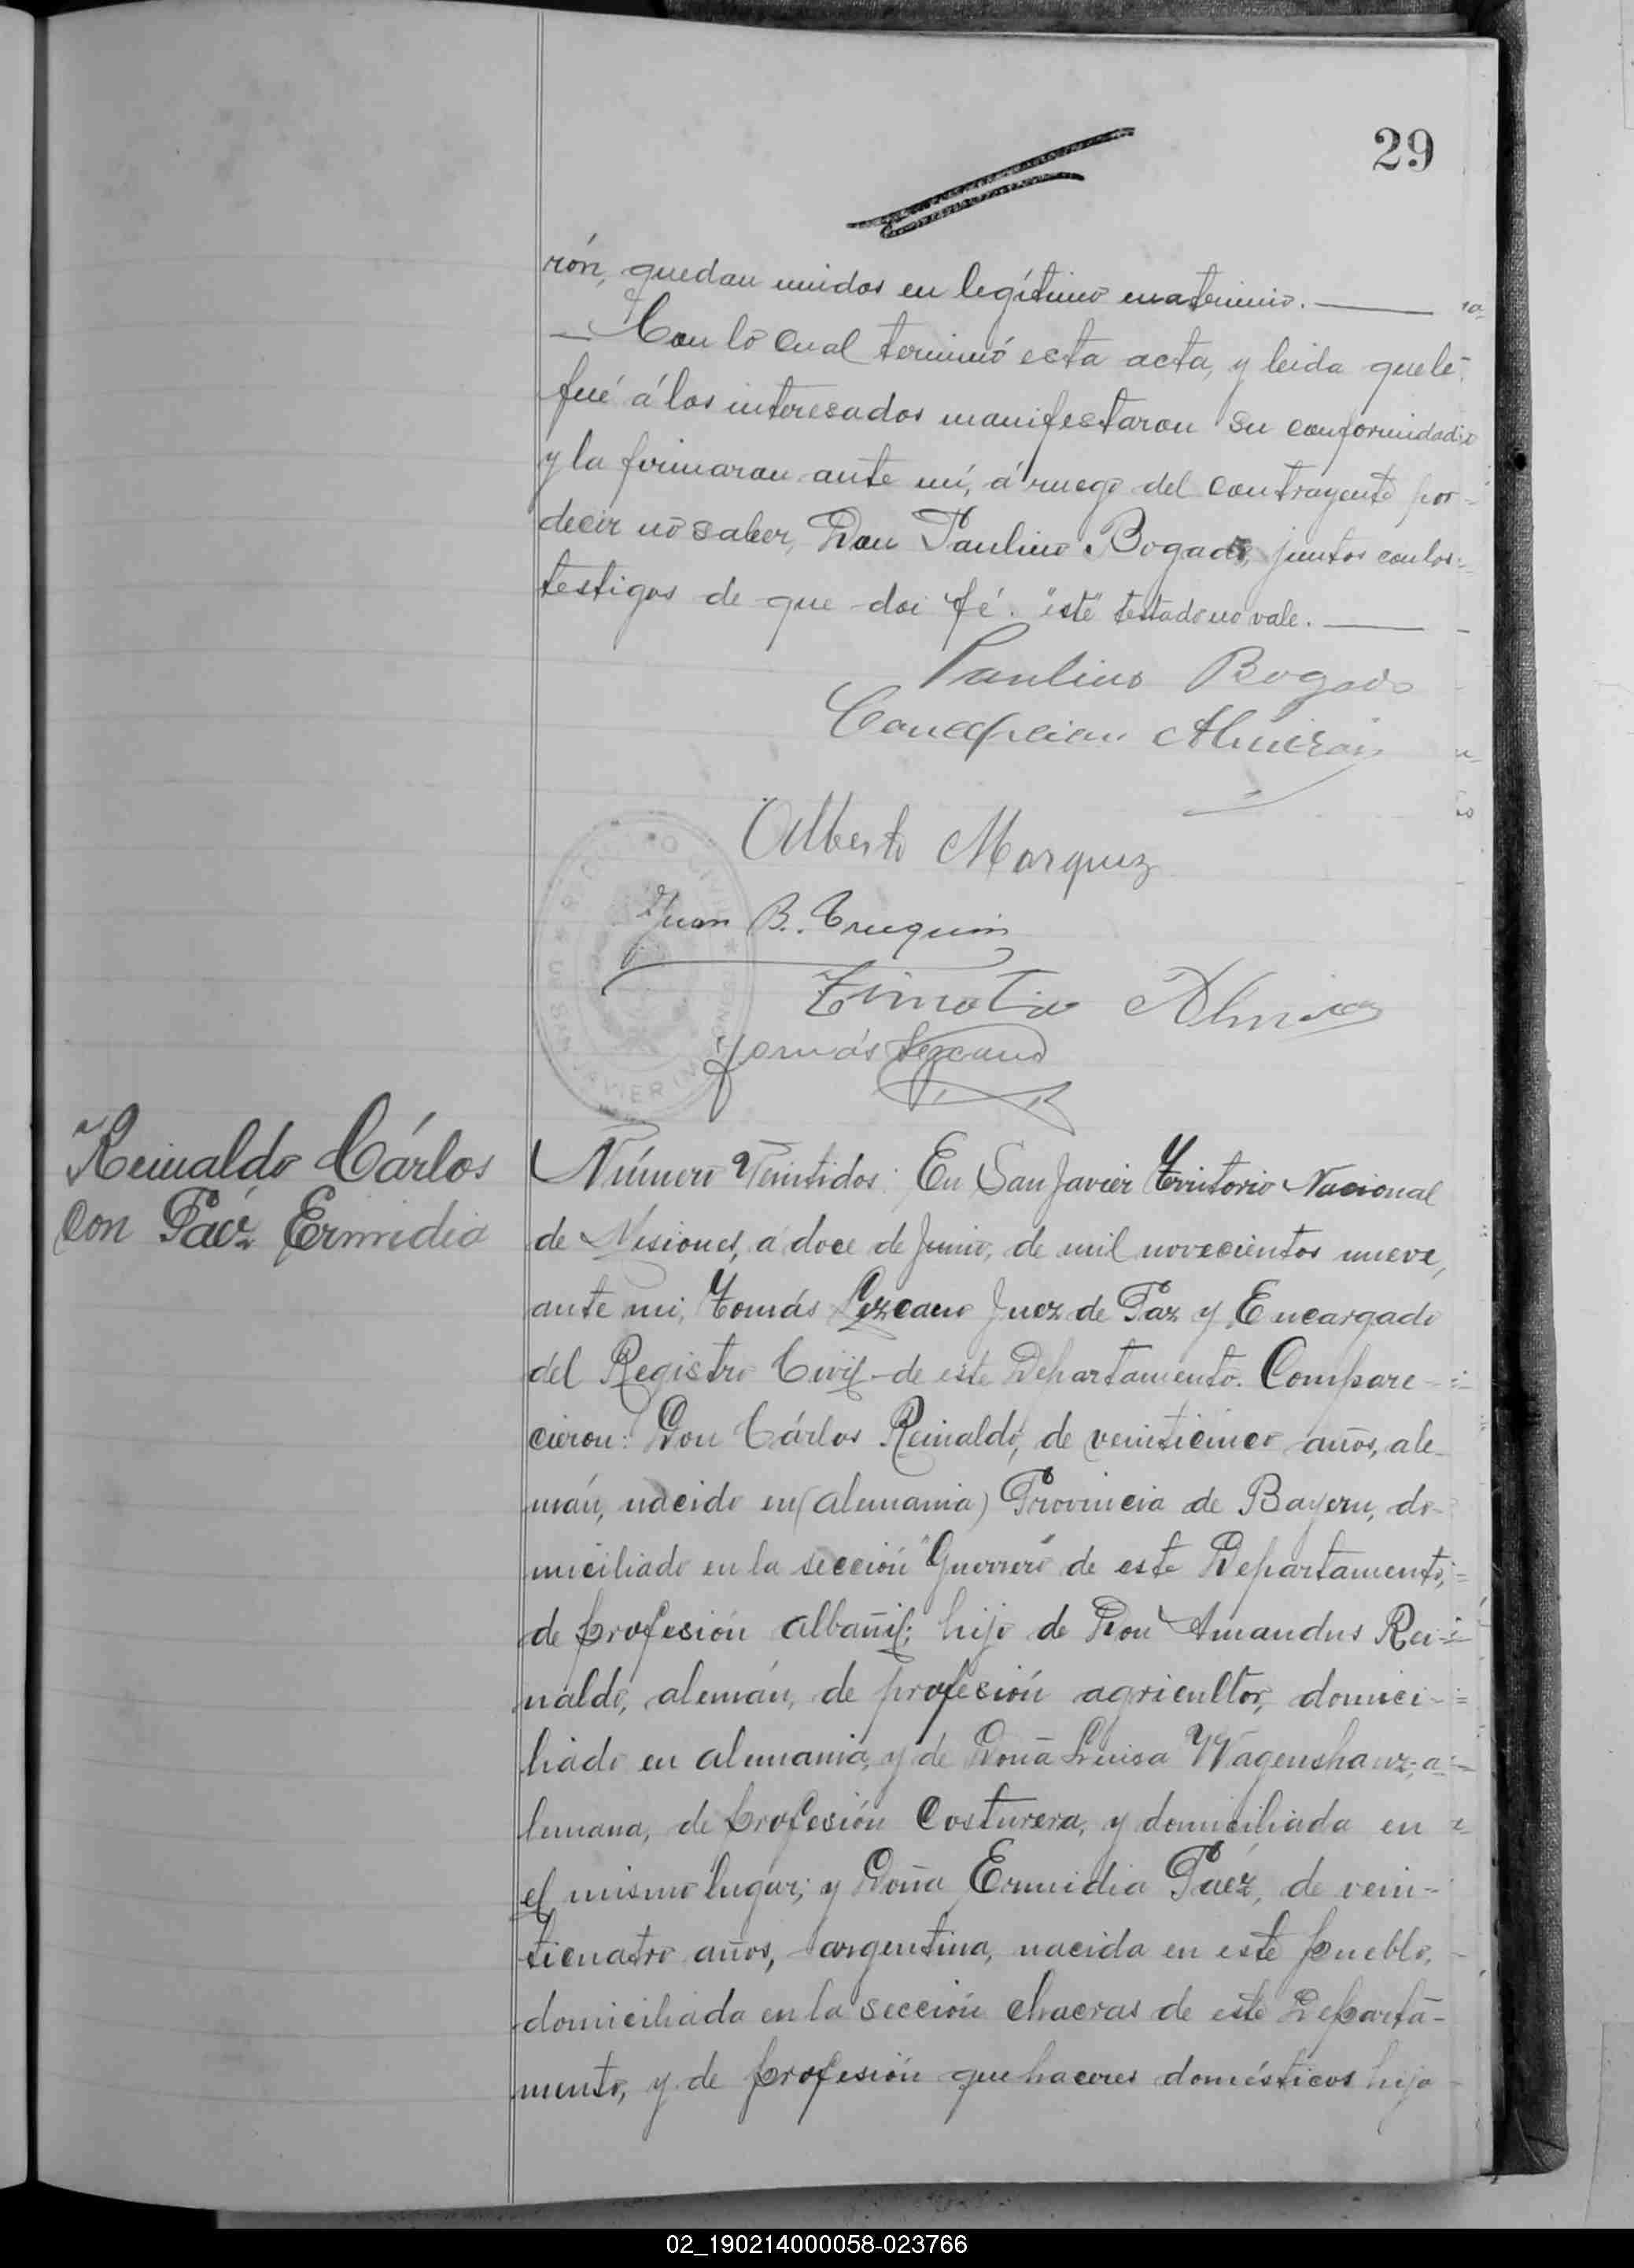 29
rón, quedan unidos en legítimo matrimio.
— Con lo cual terminó esta acta, y leida que lé
fué á los interesados manifestaron su conformidad
y la firmaron ante mí, á ruego del contrayente por
decir nó saber, Don Paulino Bogado, juntos con los
testigos de que doi fé. "esté" testado nó vale.
Paulino Bogado
Concepcion Almiron
Alberto Marquez
Juan B.
Timotio
Tomás Lezcano
SAN JAVIER
Reinaldo Cárlos
con Paéz Ermidia
Número Veintidos: En San Javier Territorio Nacional
de Misiones, a doce de Junio, de mil novecientos nueve,
ante mi, Tomás Lezcano Juez de Paz y Encargado
del Registro Civil de este Departamento. Compare-
cieron: Don Cárlos Reinaldo, de veinticinco años, ale-
mán, nacido en (alemania) Provincia de Bayern, do-
miciliado en la sección "Guerrero" de este Departamento,
de profesión albañil; hijo de Don Amandus Rei-
naldo, alemán, de profesión agricultor, domici-
liado en alemania, y de Doña Luisa Wagenshanz, a-
lemana, de profesión Costurera, y domiciliada en
el mismo lugar; y Doña Ermidia Paéz, de vein-
ticuatro años, argentina, nacida en este pueblo,
domiciliada en la sección chacras de este Departa-
mento, y de profesión quehaceres domésticos hija
02_190214000058-023766